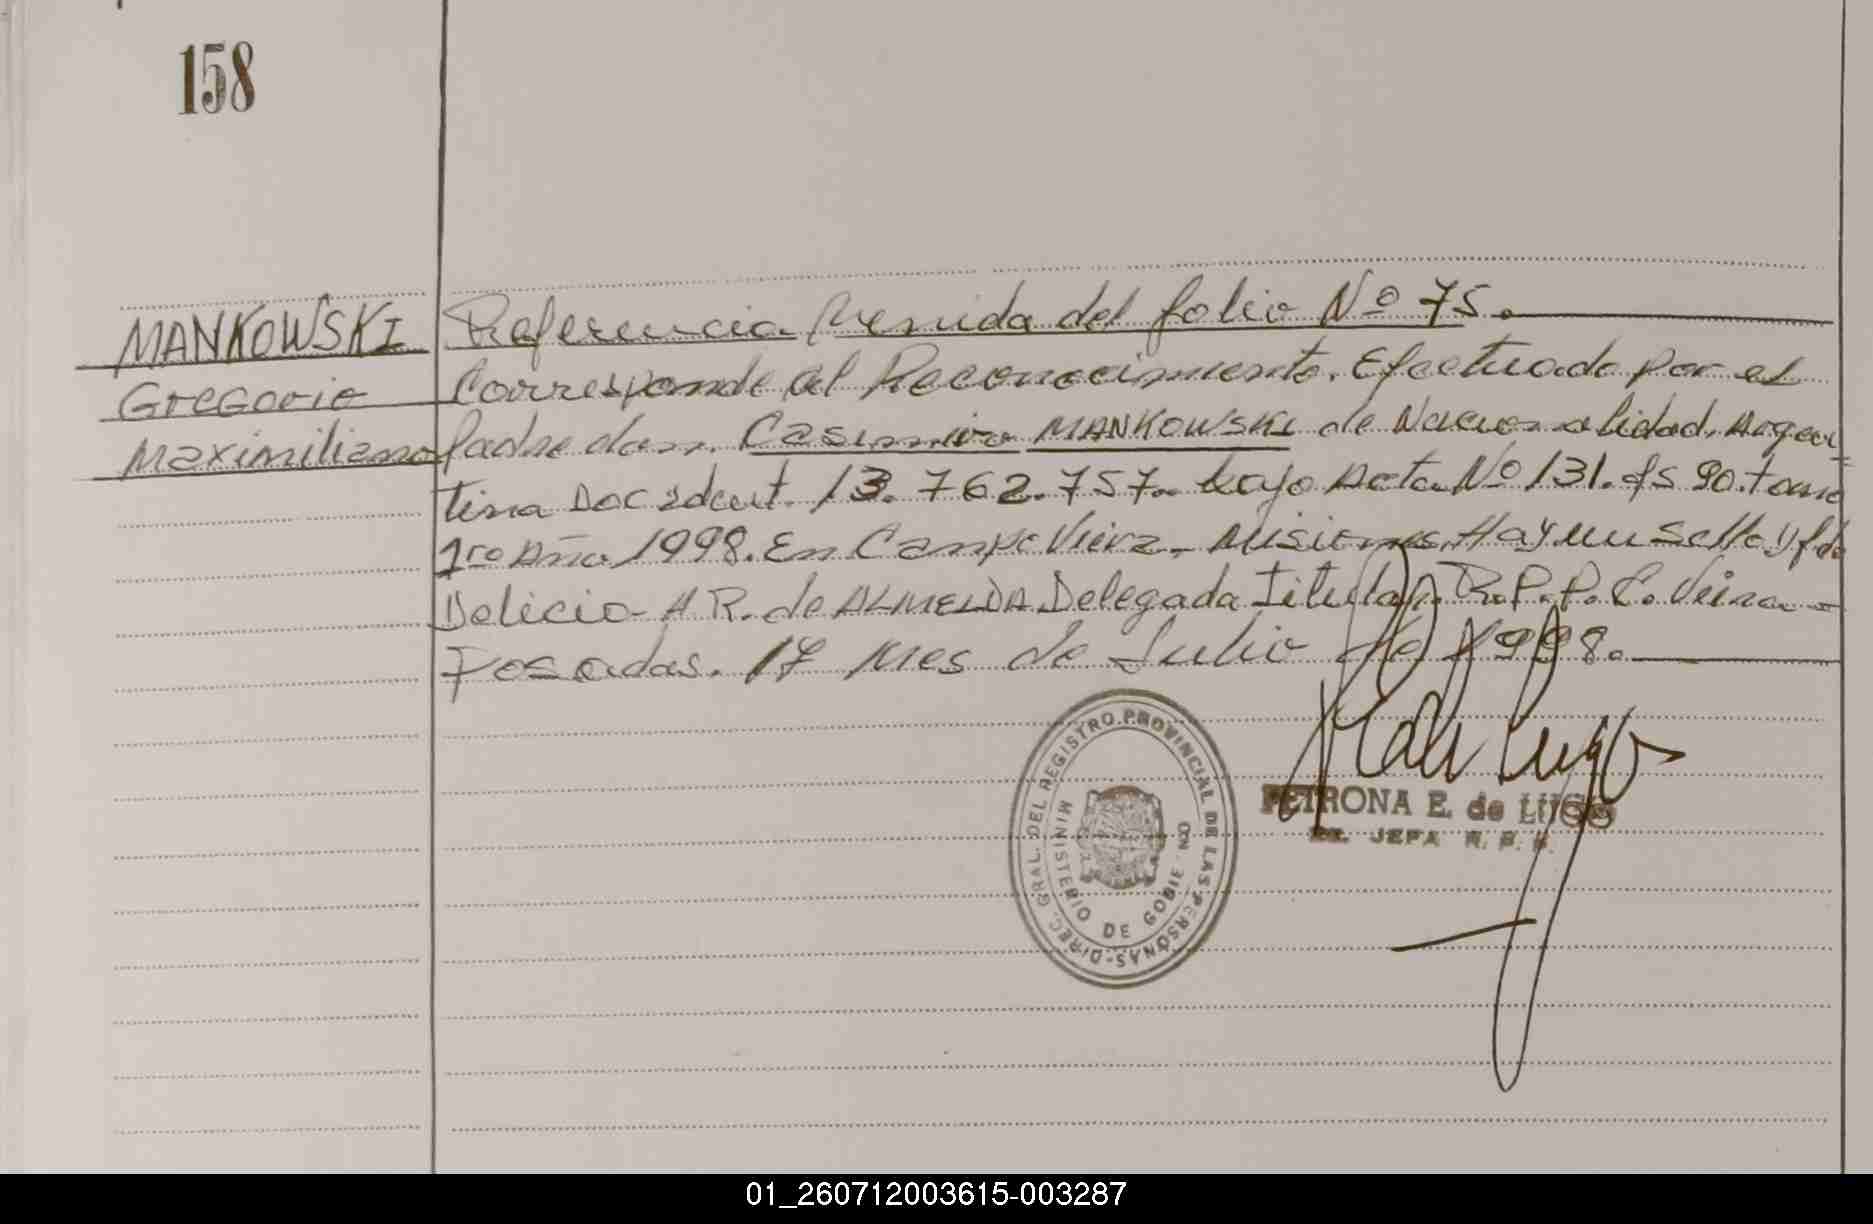 158
MANKOWSKI
Gregorio
Maximiliano
Referencia Venida del folio Nº 75.
Corresponde al Reconocimiento. Efectuado por el
Padre don. Casimiro MANKOWSKI de Nacionalidad. Argen
tina Doc ident. 13.762.757. bajo Acta Nº 131. fs 90. tomo
1ro Año 1998. En Campo Viera - Misiones. Hay un Sello y fdo
Delicia A R. de ALMEIDA Delegada Titular. R.P.P. C. Viera -
Posadas. 17 Mes de Julio de 1998.
DIREC. GRAL. DEL REGISTRO PROVINCIAL DE LAS PERSONAS
MINISTERIO DE GOBIE
PETRONA E. de LUGO
JEFA R. P. P.
01_260712003615-003287